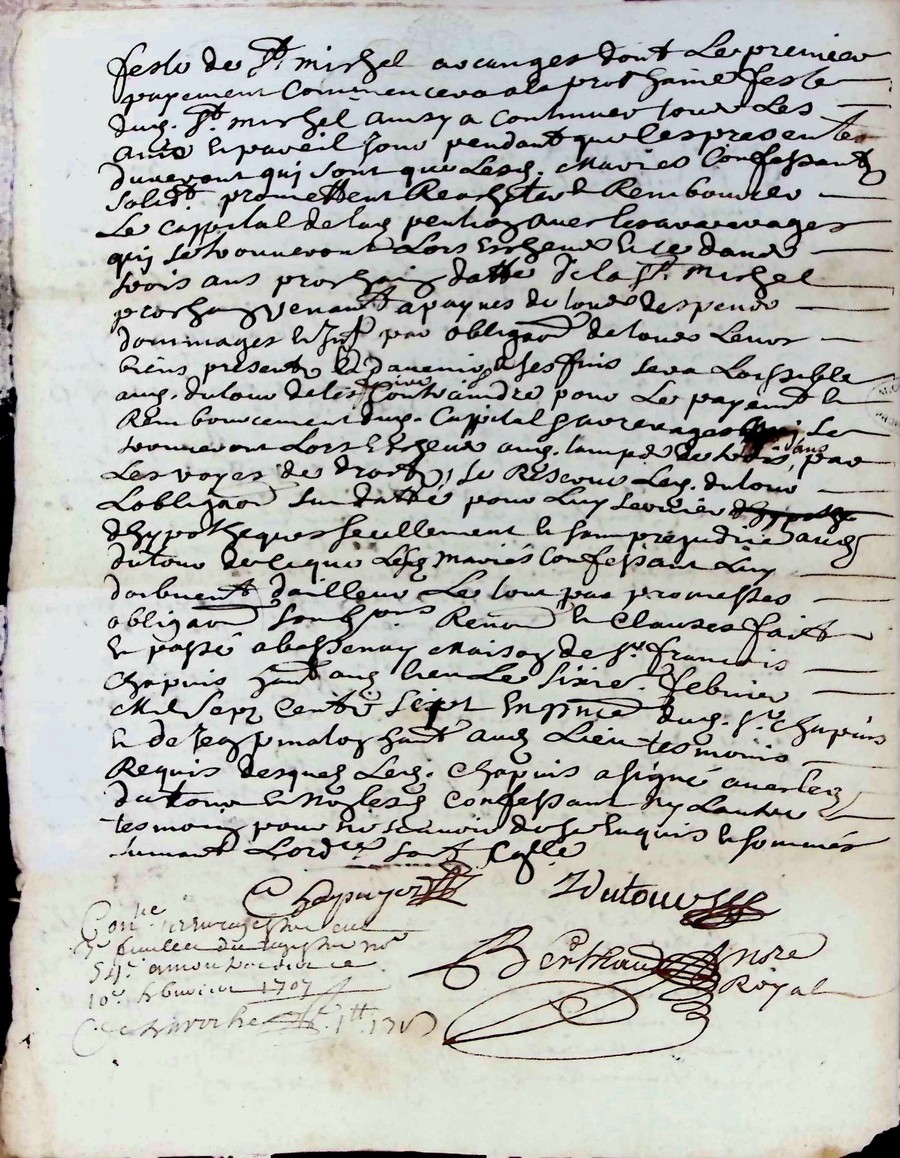 feste de St. michel arcanges dont Le premier
payement Commencera a la prochaine feste
dud. St. michel ainsy a continuer tous Les
ans En pareil jour pendant que les presentes
dureront qui sont que Lesd. Mariés Confessants
solidt. promettent Rachepter & Rembourcer
Le cappital de lad. pention avec les arrerages
qui se trouveront Lors Escheus Et ce dans
trois ans prochain datte de la St. Michel
prochain venant a paynes de tous despens
dommages Et Int par obligaon de tous Leurs
biens presents Et davenir a ses fins sera Loissible
aud. dutour de les Contraindre pour Le payemt. Et
Rembourcement dud. Cappital & arrerages qui se
trouveront Lors Escheus aud. temps de trois ans par
Les voyes de droit, se Reserve Led. dutour
Lobligaon sus dattée pour Luy servir
dhypotheques seullement Et sans prejudice aud.
dutour de ce que Lesd. mariés Confessant Luy
doibuent dailleur Le tout par promesses
obligaon soubmons Renon Et Clauses fait
Et passé a bassenay Maison de Sr. francois
Chapuis hant. aud. lieu Le sixie. febvrier
Mil sept Cents sept En pnce dud. Sr. Chapuis
Et de Jean hant. aud. Lieu tesmoins
Requis desquels Led. Chapuis a signé avec led.
dutour Et non lesd. Confessant ny Lautre
tesmoing pour ne scavoir de ce Enquis Et sommés
suivant Lordce
Chapuys
Dutour
Bertrand Nore
Royal
Conlle
feuillet du registre no
54
10e. febvrier 1707